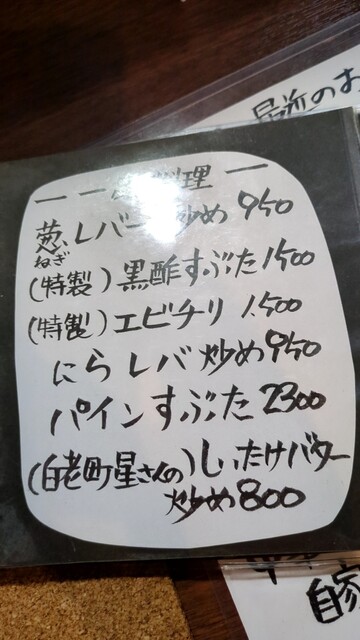 最近のお
料理
葱レバー炒め 950
ねぎ
(特製)黒酢すぶた 1500
(特製)エビチリ 1,500
にらレバ炒め 950
パインすぶた 2300
(白老町星さんの)しいたけバター
炒め 800
自家